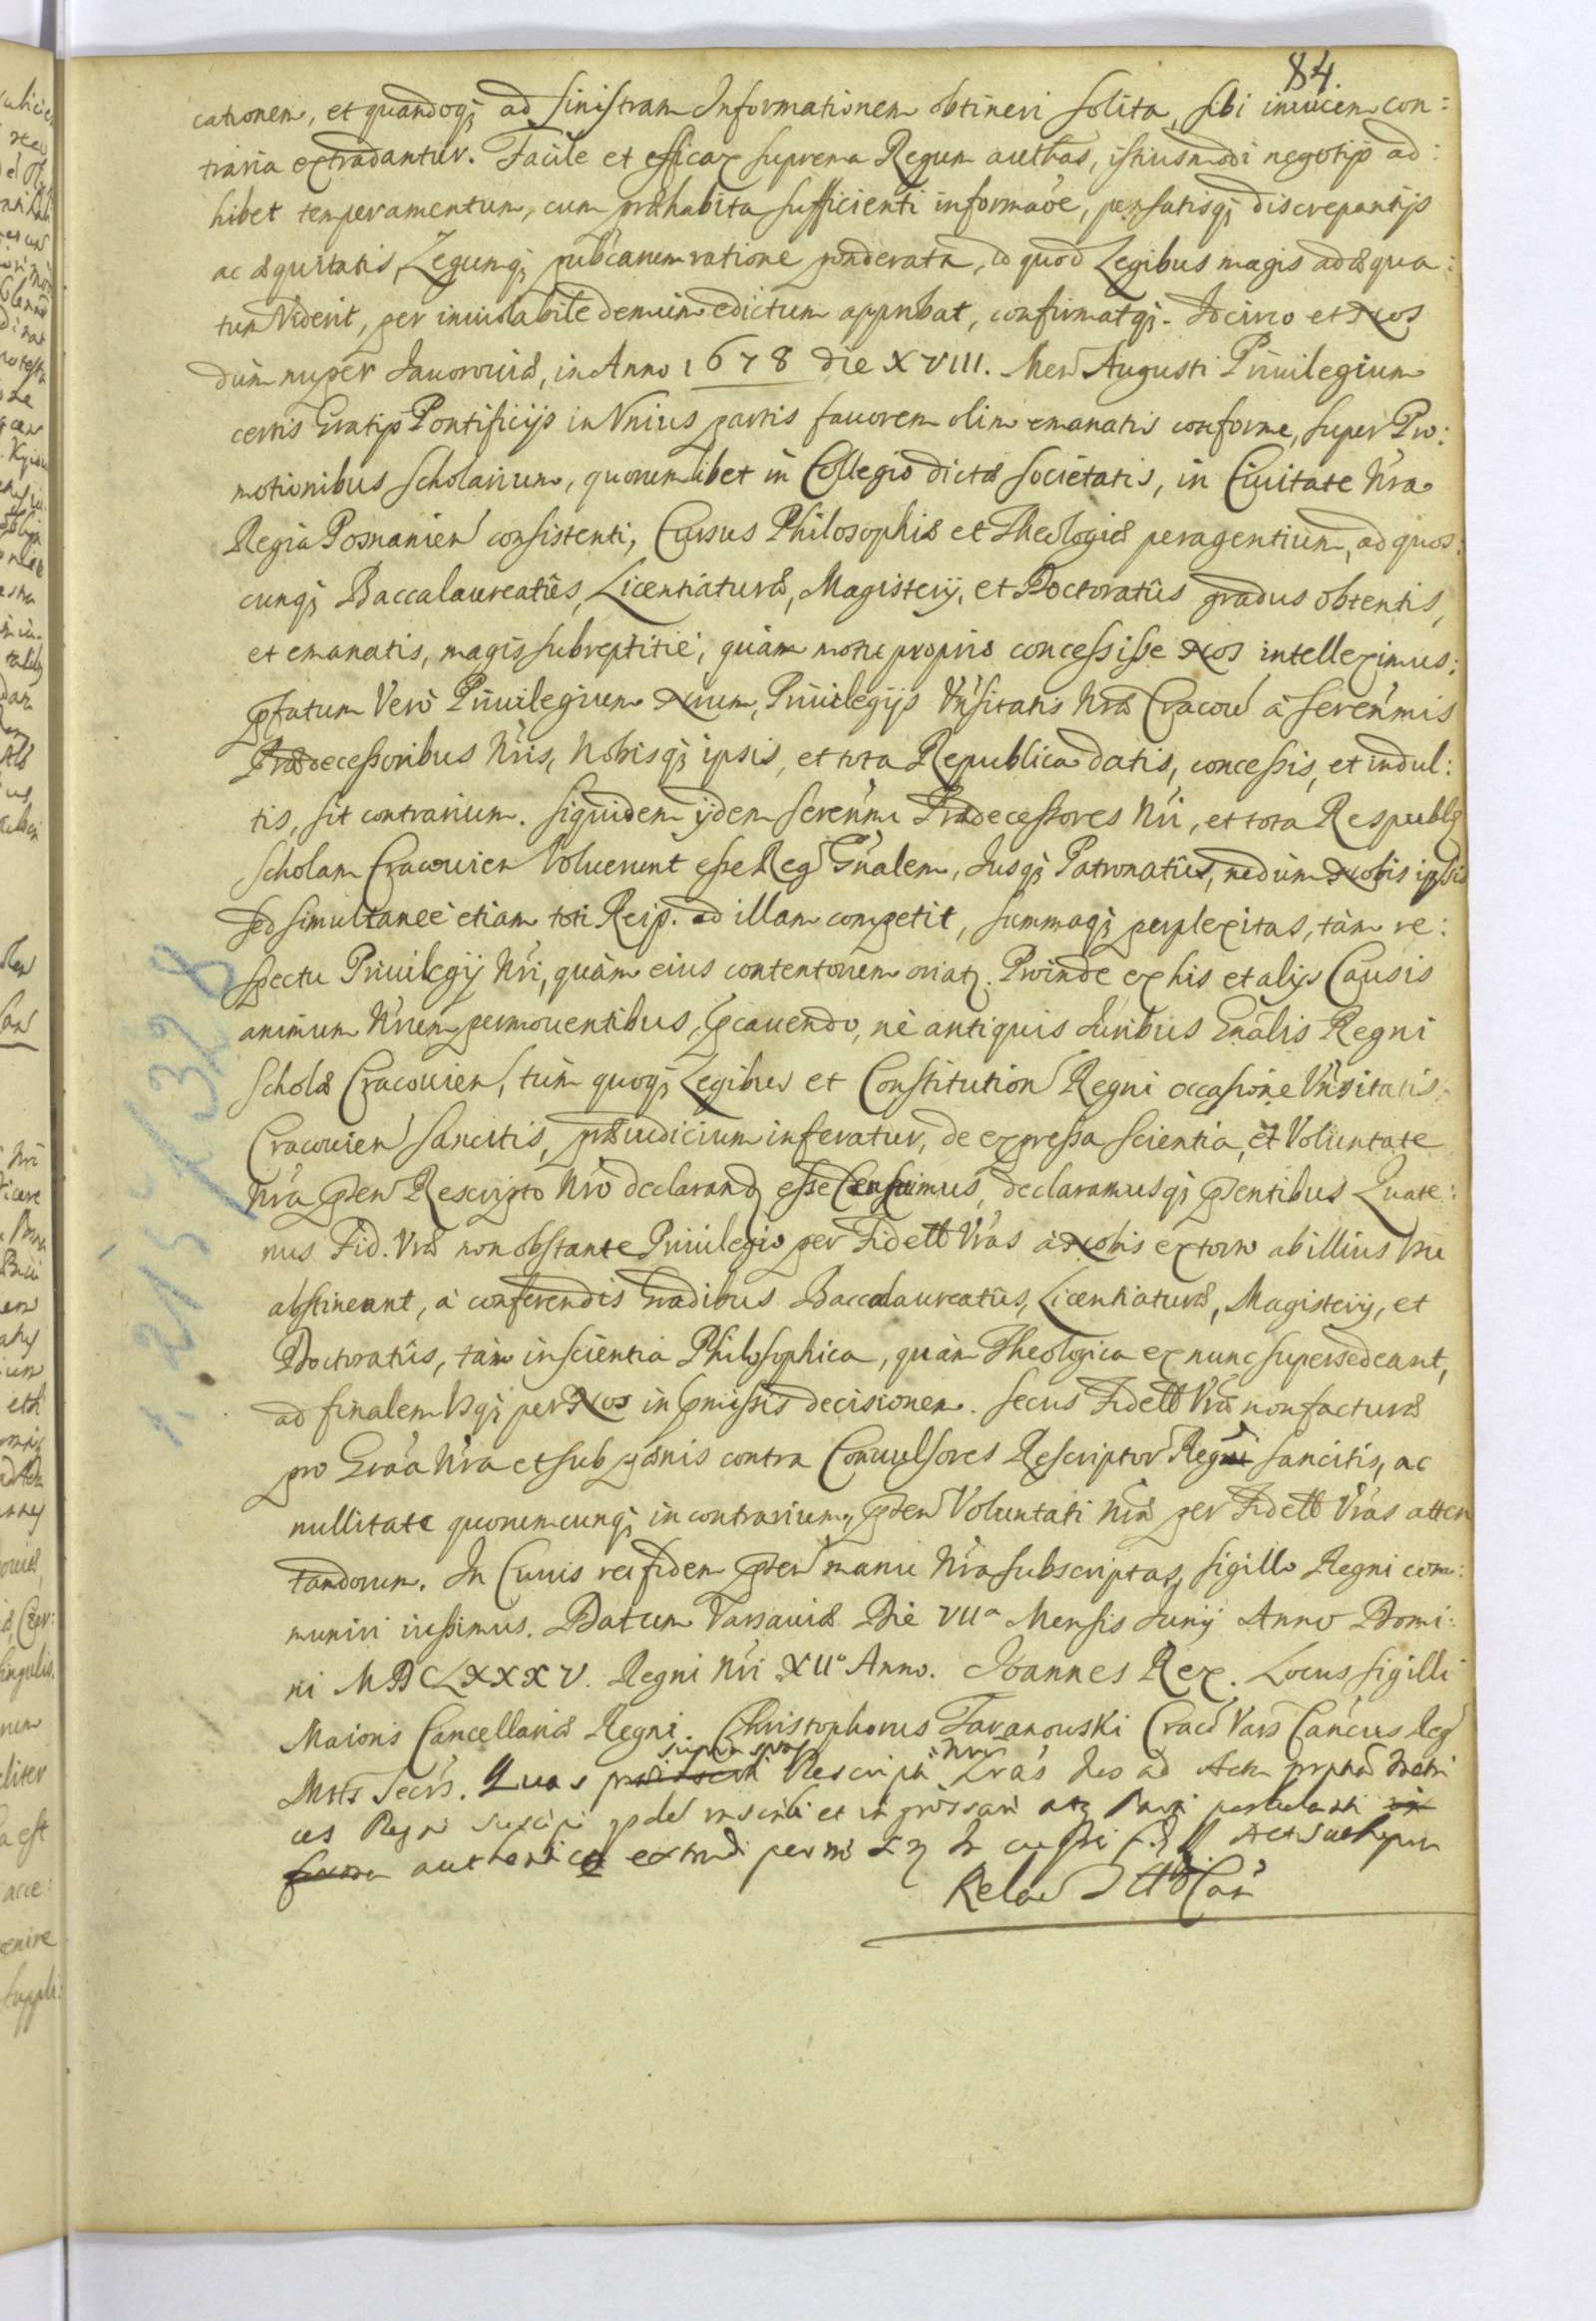 84.
cationem, et quandoq; ad sinistram Informationem obtineri solita, sibi inuicem con:
traria extradantur. Facile et efficax suprema Regum aucttas, istiusmodi negotijs ad:
hibet temperamentum, cum præhabita sufficienti informaoe, pensatisq; discrepantijs
ac æquitatis, Legumq; publcarum ratione ponderata, id quod Legibus magis adæqua:
tum Viderit, per inuiolabile demum edictum approbat, confirmatq;. Idcirco et Nos
dum nuper Jauorouiæ, in Anno 1678 die XVIII. Men Augusti Priuilegium
certis Gratijs Pontificijs in Vnius partis fauorem olim emanatis conforme, super Pro:
motionibus Scholarium, quorumlibet in Collegio dictæ Societatis, in Ciuitate Nra
Regia Posnanien consistenti, Cursus Philosophiæ et Theologiæ peragentium, ad quos:
cunq; Baccalaureatûs, Licentiaturæ, Magisterij, et Doctoratûs gradus obtentis,
et emanatis, magis subreptitiè, quàm motu proprio concessisse Nos intelleximus:
pfatum Verò Priuilegium Nrum, Priuilegijs Vnsitatis Nræ Cracou à Serenmis
Prædecessoribus Nris, Nobisq; ipsis, et tota Republica datis, concessis, et indul:
tis, sit contrarium. Siquidem ijdem Serenmi Prædecessores Nri, et tota Respublq
Scholam Cracouien Voluerunt esse Reg Gnalem, Jusq; Patronatûs, nedum Nobis ipsis
sed simultaneè etiam toti Reip. ad illam competit, summaq; perplexitas, tàm re:
spectu Priuilegij Nri, quàm eius contentorum oriat. Proinde ex his et alijs Causis
animum Nrum permouentibus, pcauendo, nè antiquis Juribus Gnalis Regni
Scholæ Cracouien, tum quoq; Legibus et Constitution Regni occasione Vnsitatis
Cracouien sancitis, præiudicium inferatur, de expressa scientia, et Voluntate
Nra psen Rescripto Nro declarand esse Censuimus, declaramusq; psentibus Quate:
nus Fid. Vræ non obstante Priuilegio per Fidett Vras à Nobis extorto ab illius Vsu
abstineant, à conferendis Gradibus Baccalaureatûs, Licentiaturæ, Magisterij, et
Doctoratûs, tàm in scientia Philosophica, quàm Theologica ex nunc supersedeant,
ad finalem Vsq; per Nos in pmissis decisionem. Secus Fidett Vræ non facturæ
pro Graa Nra et sub pænis contra Conuulsores Rescriptor Regni sancitis, ac
nullitate quorumcunq; in contrarium, psen Voluntati Nræ per Fidett Vras atten
tandorum. In Cuius rei fidem psen manu Nra subscriptas, sigillo Regni com:
muniri iussimus. Datum Varsauiæ Die VIIa Mensis Junij Anno Domi:
ni MDCLXXXV. Regni Nri XIIo Anno. Joannes Rex. Locus Sigilli
Maioris Cancellariæ Regni. Christophorus Taranowski Cracv Vars Cancus Reg
Mttis Secrs. Quas Rescripti Lras Nos ad Acta
ces Regni suscipi inscribi et ingrossari
authentice extradi
Relao
1.215/1328